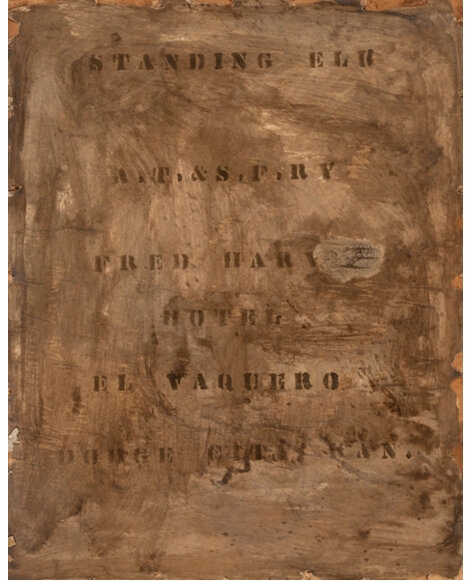 STANDING ELK
A.T.&S.F.RY
FRED HARV
HOTEL
EL VAQUERO
DODGE CITY KAN.